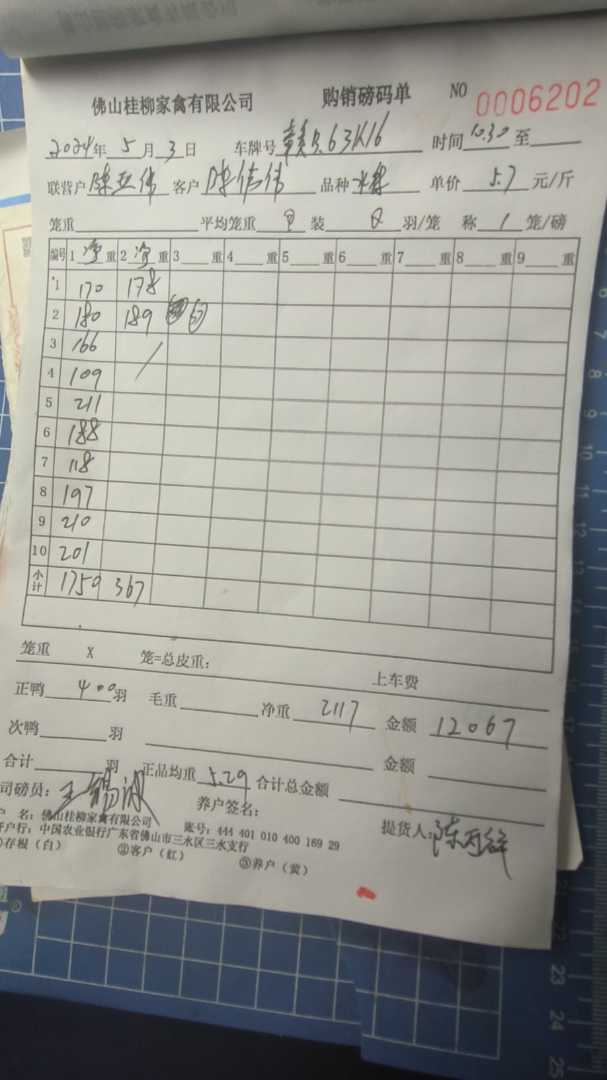 佛山桂柳家禽有限公司 购销磅码单 NO 0006202
2024年5月3日 车牌号 63K16 时间10.30至
联营户 陈亚伟 客户 陈伟伟 品种 单价 5.7 元/斤
笼重 平均笼重 装 羽/笼 称 1 笼/磅
编号 1 净 重 2 净 重 3 重 4 重 5 重 6 重 7 重 8 重 9 重
1 170 178
2 180 189
3 166
4 109
5 211
6 188
7 118
8 197
9 210
10 201
小计 1759 367
笼重 X 笼=总皮重: 上车费
正鸭 400羽 毛重 净重 2117 金额 12067
次鸭 羽 金额
合计 羽 正品均重 5.29 合计总金额
司磅员: 王锡波 养户签名: 提货人:陈
户 名: 佛山桂柳家禽有限公司 账号: 444 401 010 400 169 29
开户行: 中国农业银行广东省佛山市三水区三水支行
①存根(白) ②客户(红) ③养户(黄)